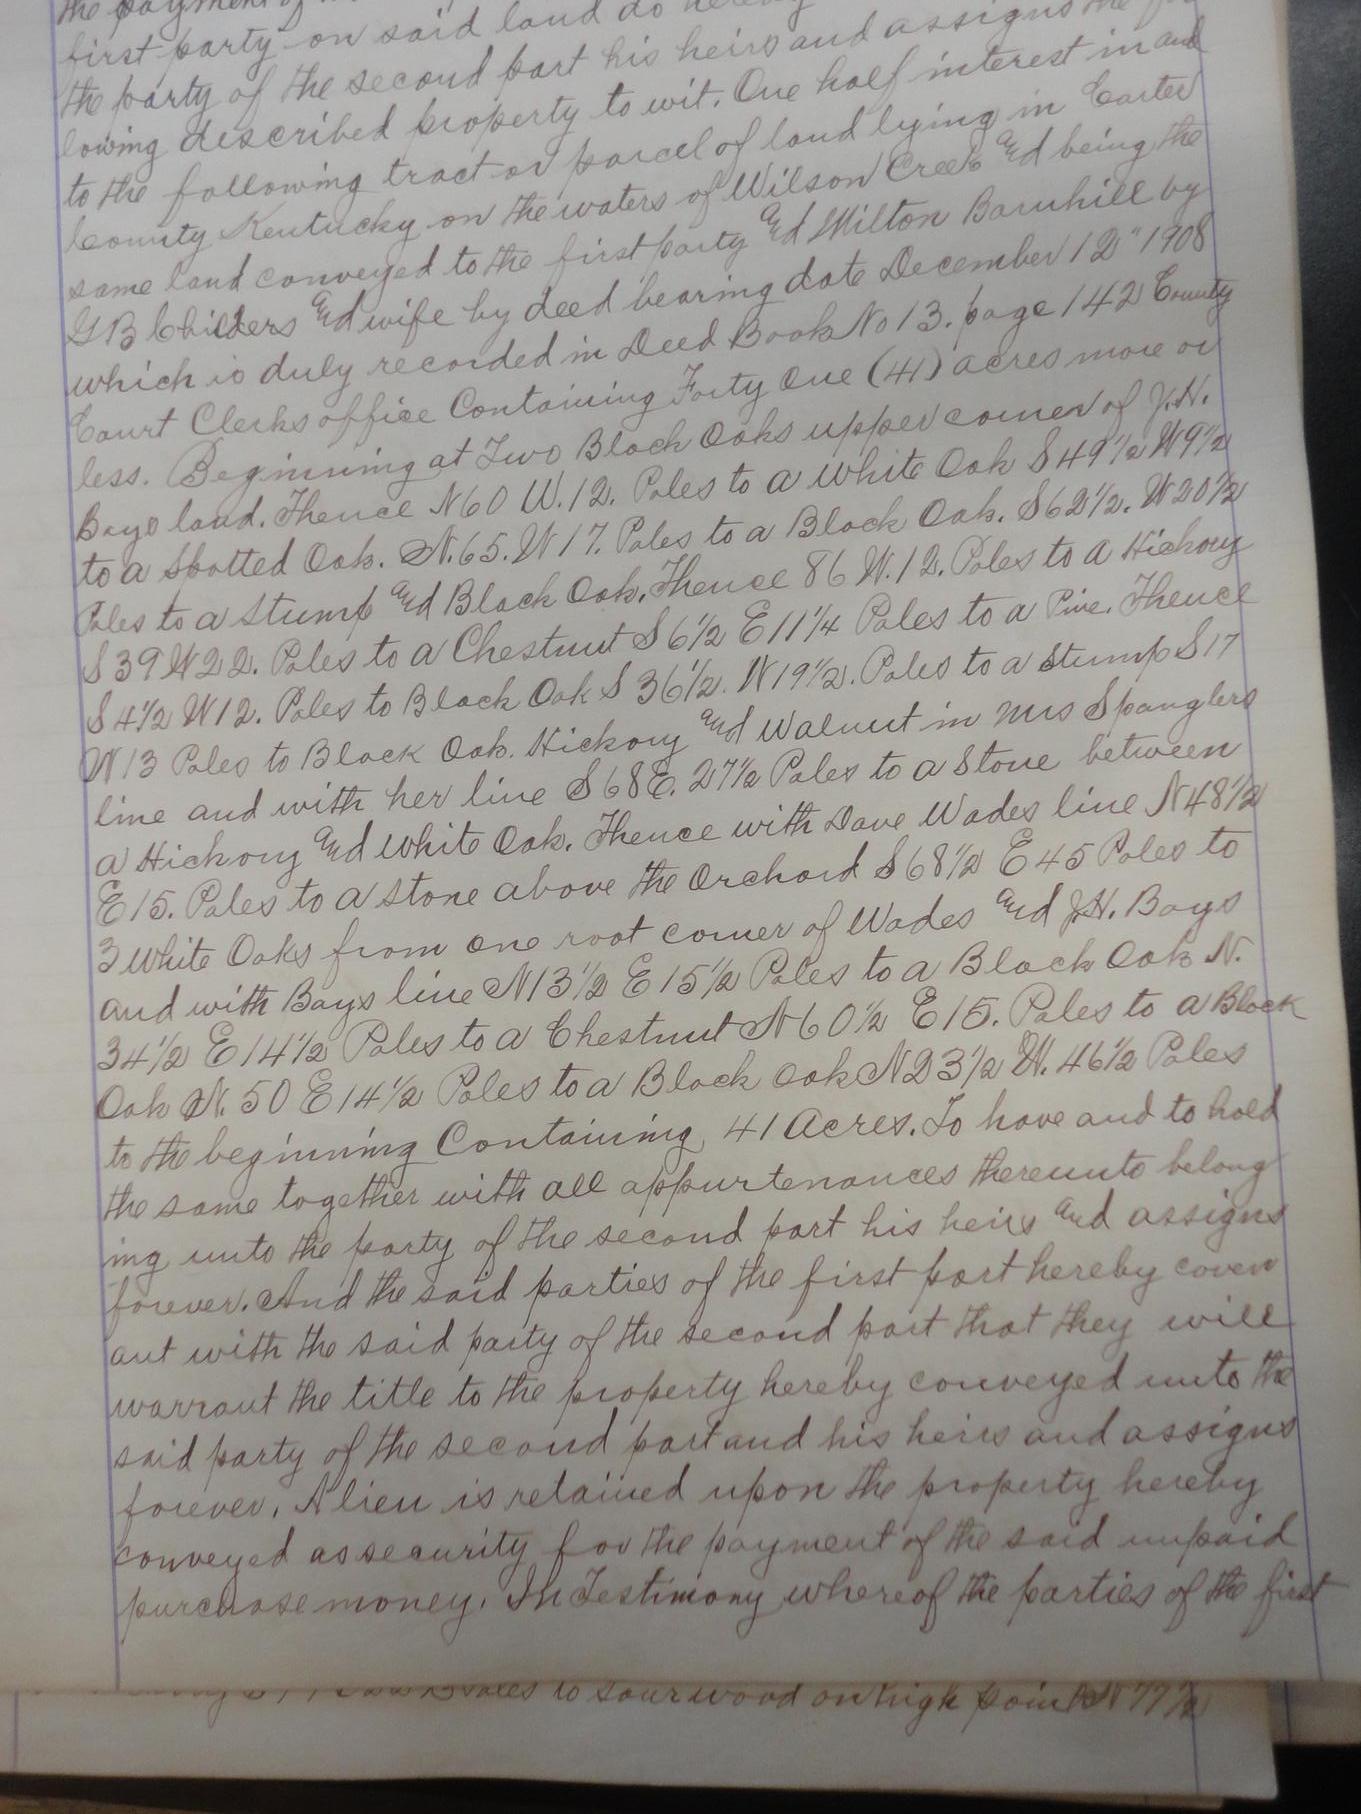 the payment of
first party on said land do hereby
the party of the second part his heirs and assigns the fol
lowing described property to wit. One half interest in and
to the following tract or parcel of land lying in Carter
County Kentucky on the waters of Wilson Creek and being the
same land conveyed to the first party and Milton Barnhill by
G B Childers and wife by deed bearing date December 12" 1908
which is duly recorded in Deed Book No 13. page 142 County
Court Clerks office Containing Forty One (41) acres more or
less. Beginning at Two Black Oaks upper corner of J.H.
Bays land. Thence N60 W.12. Poles to a white Oak S49 1/2 W9 1/2
to a Spotted Oak. N.65. W17. Poles to a Black Oak. S62 1/2. W20 1/2
Poles to a Stump and Black Oak. Thence 86 W.12. Poles to a Hickory
S39 W22. Poles to a Chestnut S6 1/2 E11 1/4 Poles to a Pine. Thence
S4 1/2 W12. Poles to Black Oak S 36 1/2. W19 1/2. Poles to a Stump S17
W13 Poles to Black Oak. Hickory and Walnut in Mrs Spanglers
line and with her line S68E. 27 1/2 Poles to a Stone between
a Hickory and white Oak. Thence with Dave Wades line N48 1/2
E15. Poles to a Stone above the Orchard S68 1/2 E45 Poles to
3 white Oaks from one root corner of Wades and J.H. Bays
and with Bays line N13 1/2 E15 1/2 Poles to a Black Oak N.
34 1/2 E14 1/2 Poles to a Chestnut N60 1/2 E15. Poles to a Black
Oak N. 50 E14 1/2 Poles to a Black Oak N23 1/2 W. 46 1/2 Poles
to the beginning Containing 41 Acres. To have and to hold
the same together with all appurtenances thereunto belong
ing unto the party of the second part his heirs and assigns
forever. And the said parties of the first part hereby coven
ant with the said party of the second part that they will
warrant the title to the property hereby conveyed unto the
said party of the second part and his heirs and assigns
forever. A lien is retained upon the property hereby
conveyed as security for the payment of the said unpaid
purchase money. In Testimony whereof the parties of the first
Poles to sourwood on high point N77 1/2